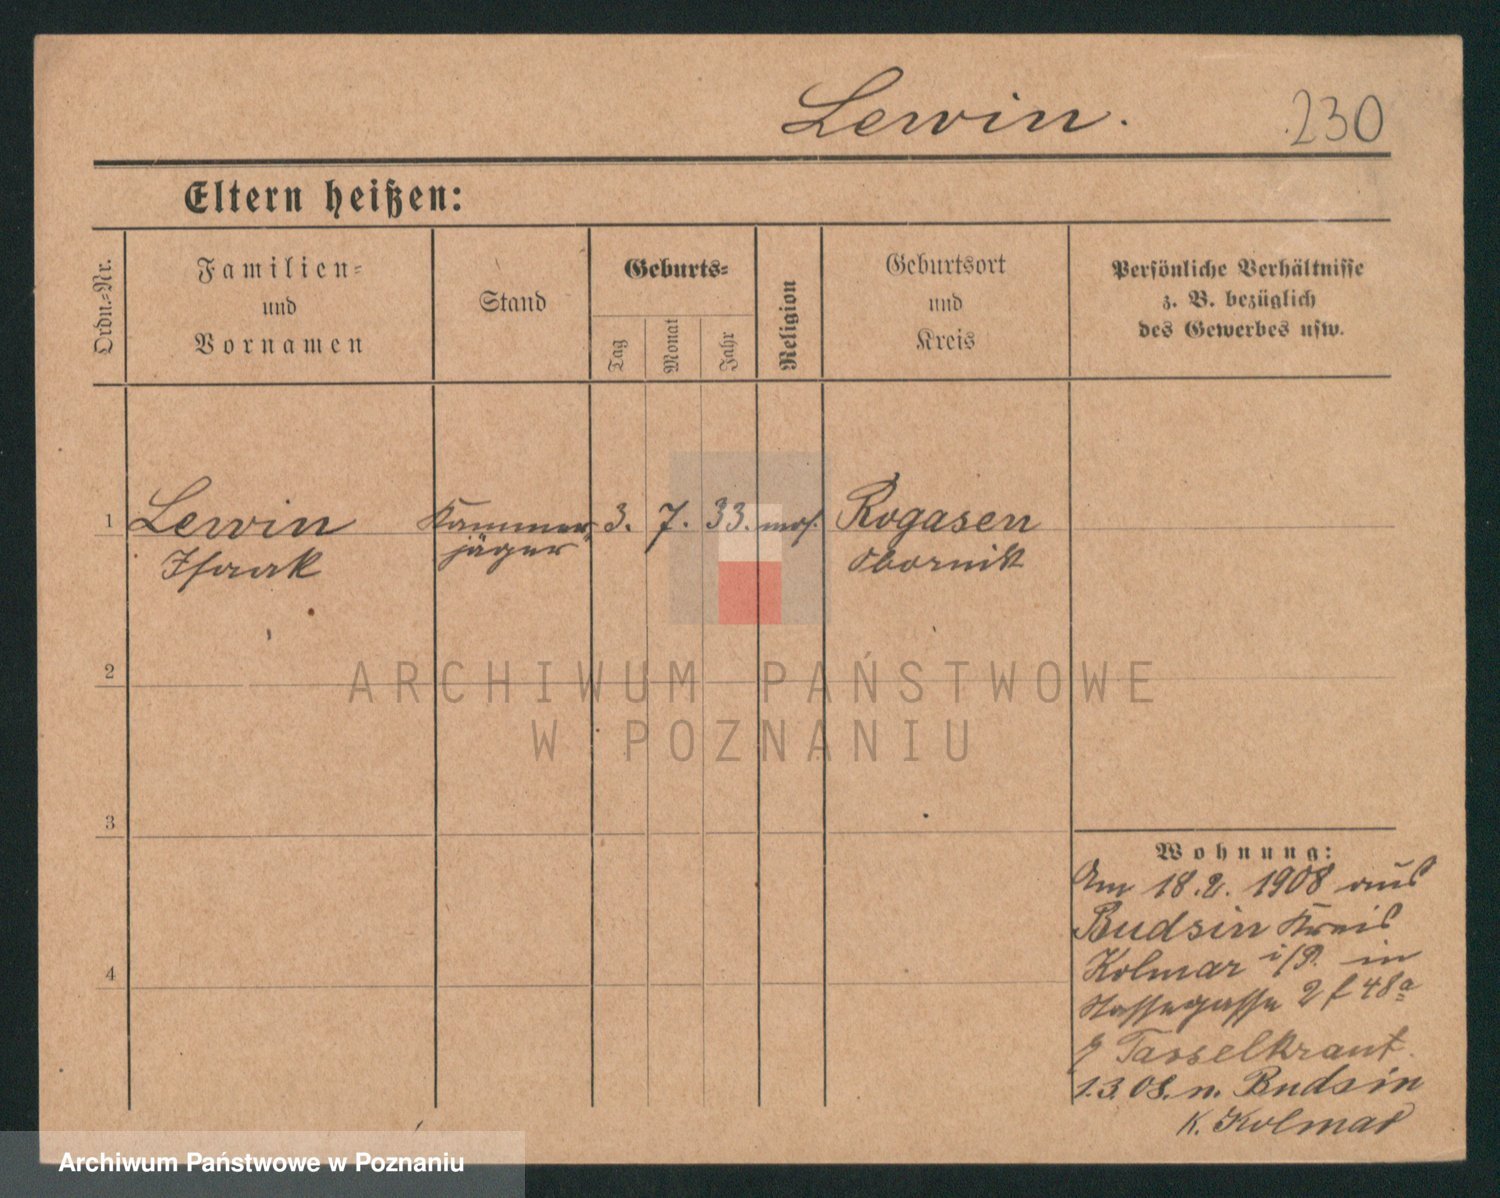 Lewin.
230
Eltern heißen:
Ordn.=Nr.
Familien=
und
Vornamen
Stand
Geburts=
Tag
Monat
Jahr
Religion
Geburtsort
und
Kreis
Persönliche Verhältnisse
z. B. bezüglich
des Gewerbes usw.
1 Lewin Kammer= 3. 7. 33. mos. Rogasen
Isaak jäger Obornik
2
3
4
Wohnung:
Am 18.2. 1908 aus
Budsin Kreis
Kolmar i/P. in
2 48a
Tasselkraut.
1.3.08. n. Budsin
K. Kolmar
ARCHIWUM PAŃSTWOWE
W POZNANIU
Archiwum Państwowe w Poznaniu